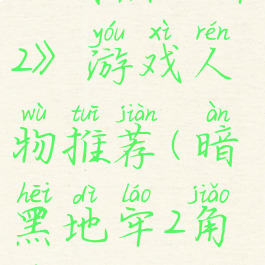 2》游戏人
yóu xì rén
物推荐(暗
wù tuī jiàn àn
黑地牢2角
hēi dì láo jiǎo